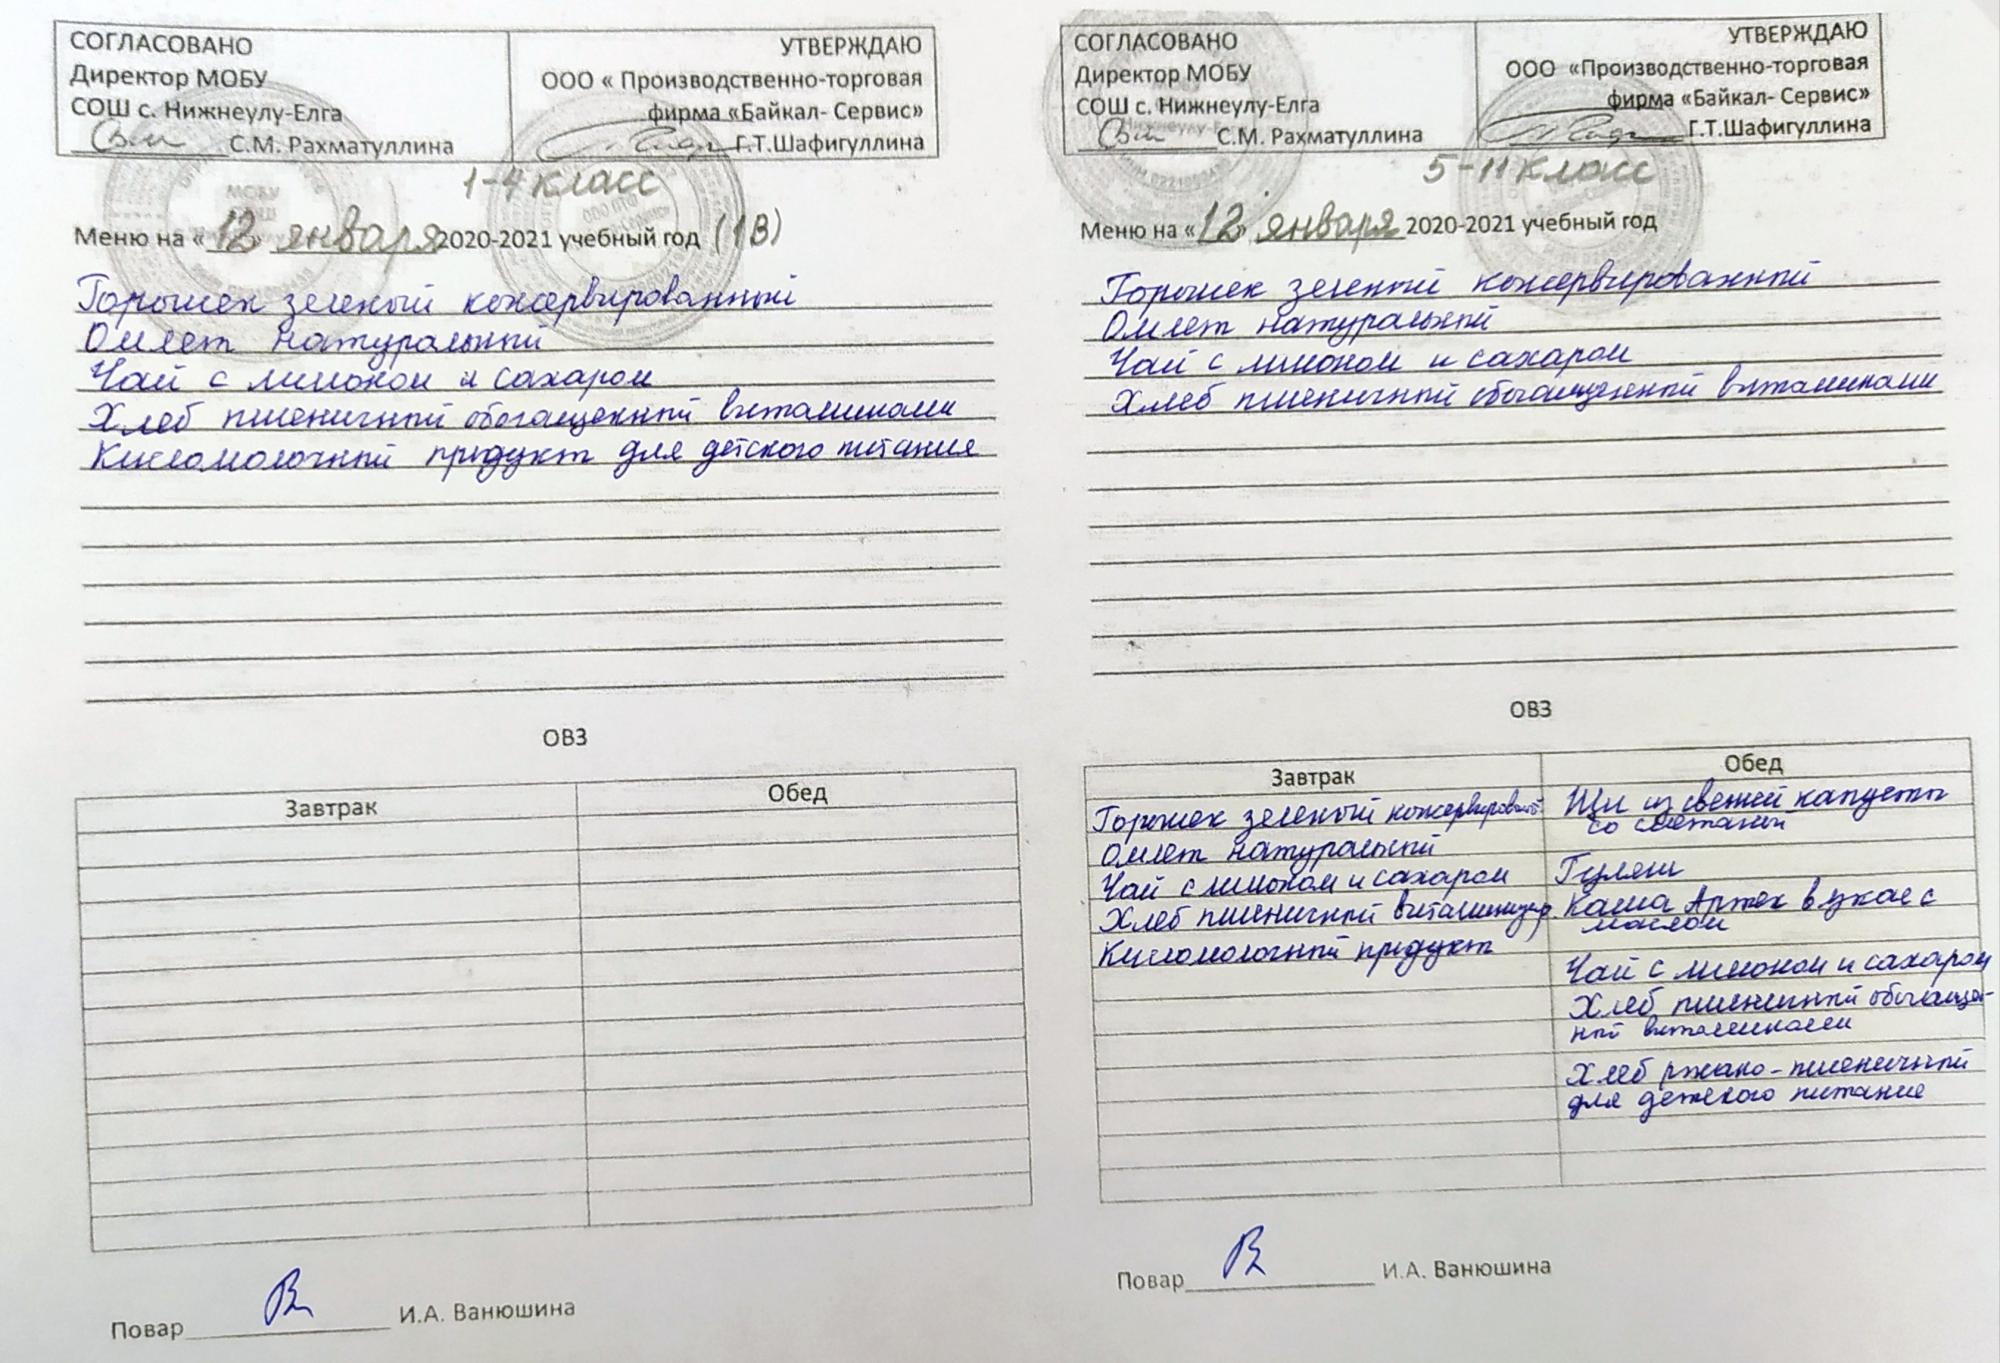 СОГЛАСОВАНО
Директор МОБУ
СОШ с. Нижнеулу-Елга
С.М. Рахматуллина
УТВЕРЖДАЮ
ООО « Производственно-торговая
фирма «Байкал- Сервис»
Г.Т.Шафигуллина
1-4 класс
Меню на «12» января 2020-2021 учебный год (1В)
Горошек зеленый консервированный
Омлет натуральный
Чай с лимоном и сахаром
Хлеб пшеничный обогащенный витаминами
Кисломолочный продукт для детского питания
ОВЗ
Завтрак
Обед
Повар И.А. Ванюшина
СОГЛАСОВАНО
Директор МОБУ
СОШ с. Нижнеулу-Елга
С.М. Рахматуллина
УТВЕРЖДАЮ
ООО «Производственно-торговая
фирма «Байкал- Сервис»
Г.Т.Шафигуллина
5-11 класс
Меню на «12» января 2020-2021 учебный год
Горошек зеленый консервированный
Омлет натуральный
Чай с лимоном и сахаром
Хлеб пшеничный обогащенный витаминами
ОВЗ
Завтрак
Горошек зеленый
Омлет натуральный
Чай с лимоном и сахаром
Хлеб пшеничный витаминизир
Кисломолочный продукт
Обед
Щи из свежей капусты
со сметаной
Гуляш
Каша Артек вязкая с
маслом
Чай с лимоном и сахаром
Хлеб пшеничный обогащен-
ный витаминами
Хлеб ржано-пшеничный
для детского питание
Повар И.А. Ванюшина